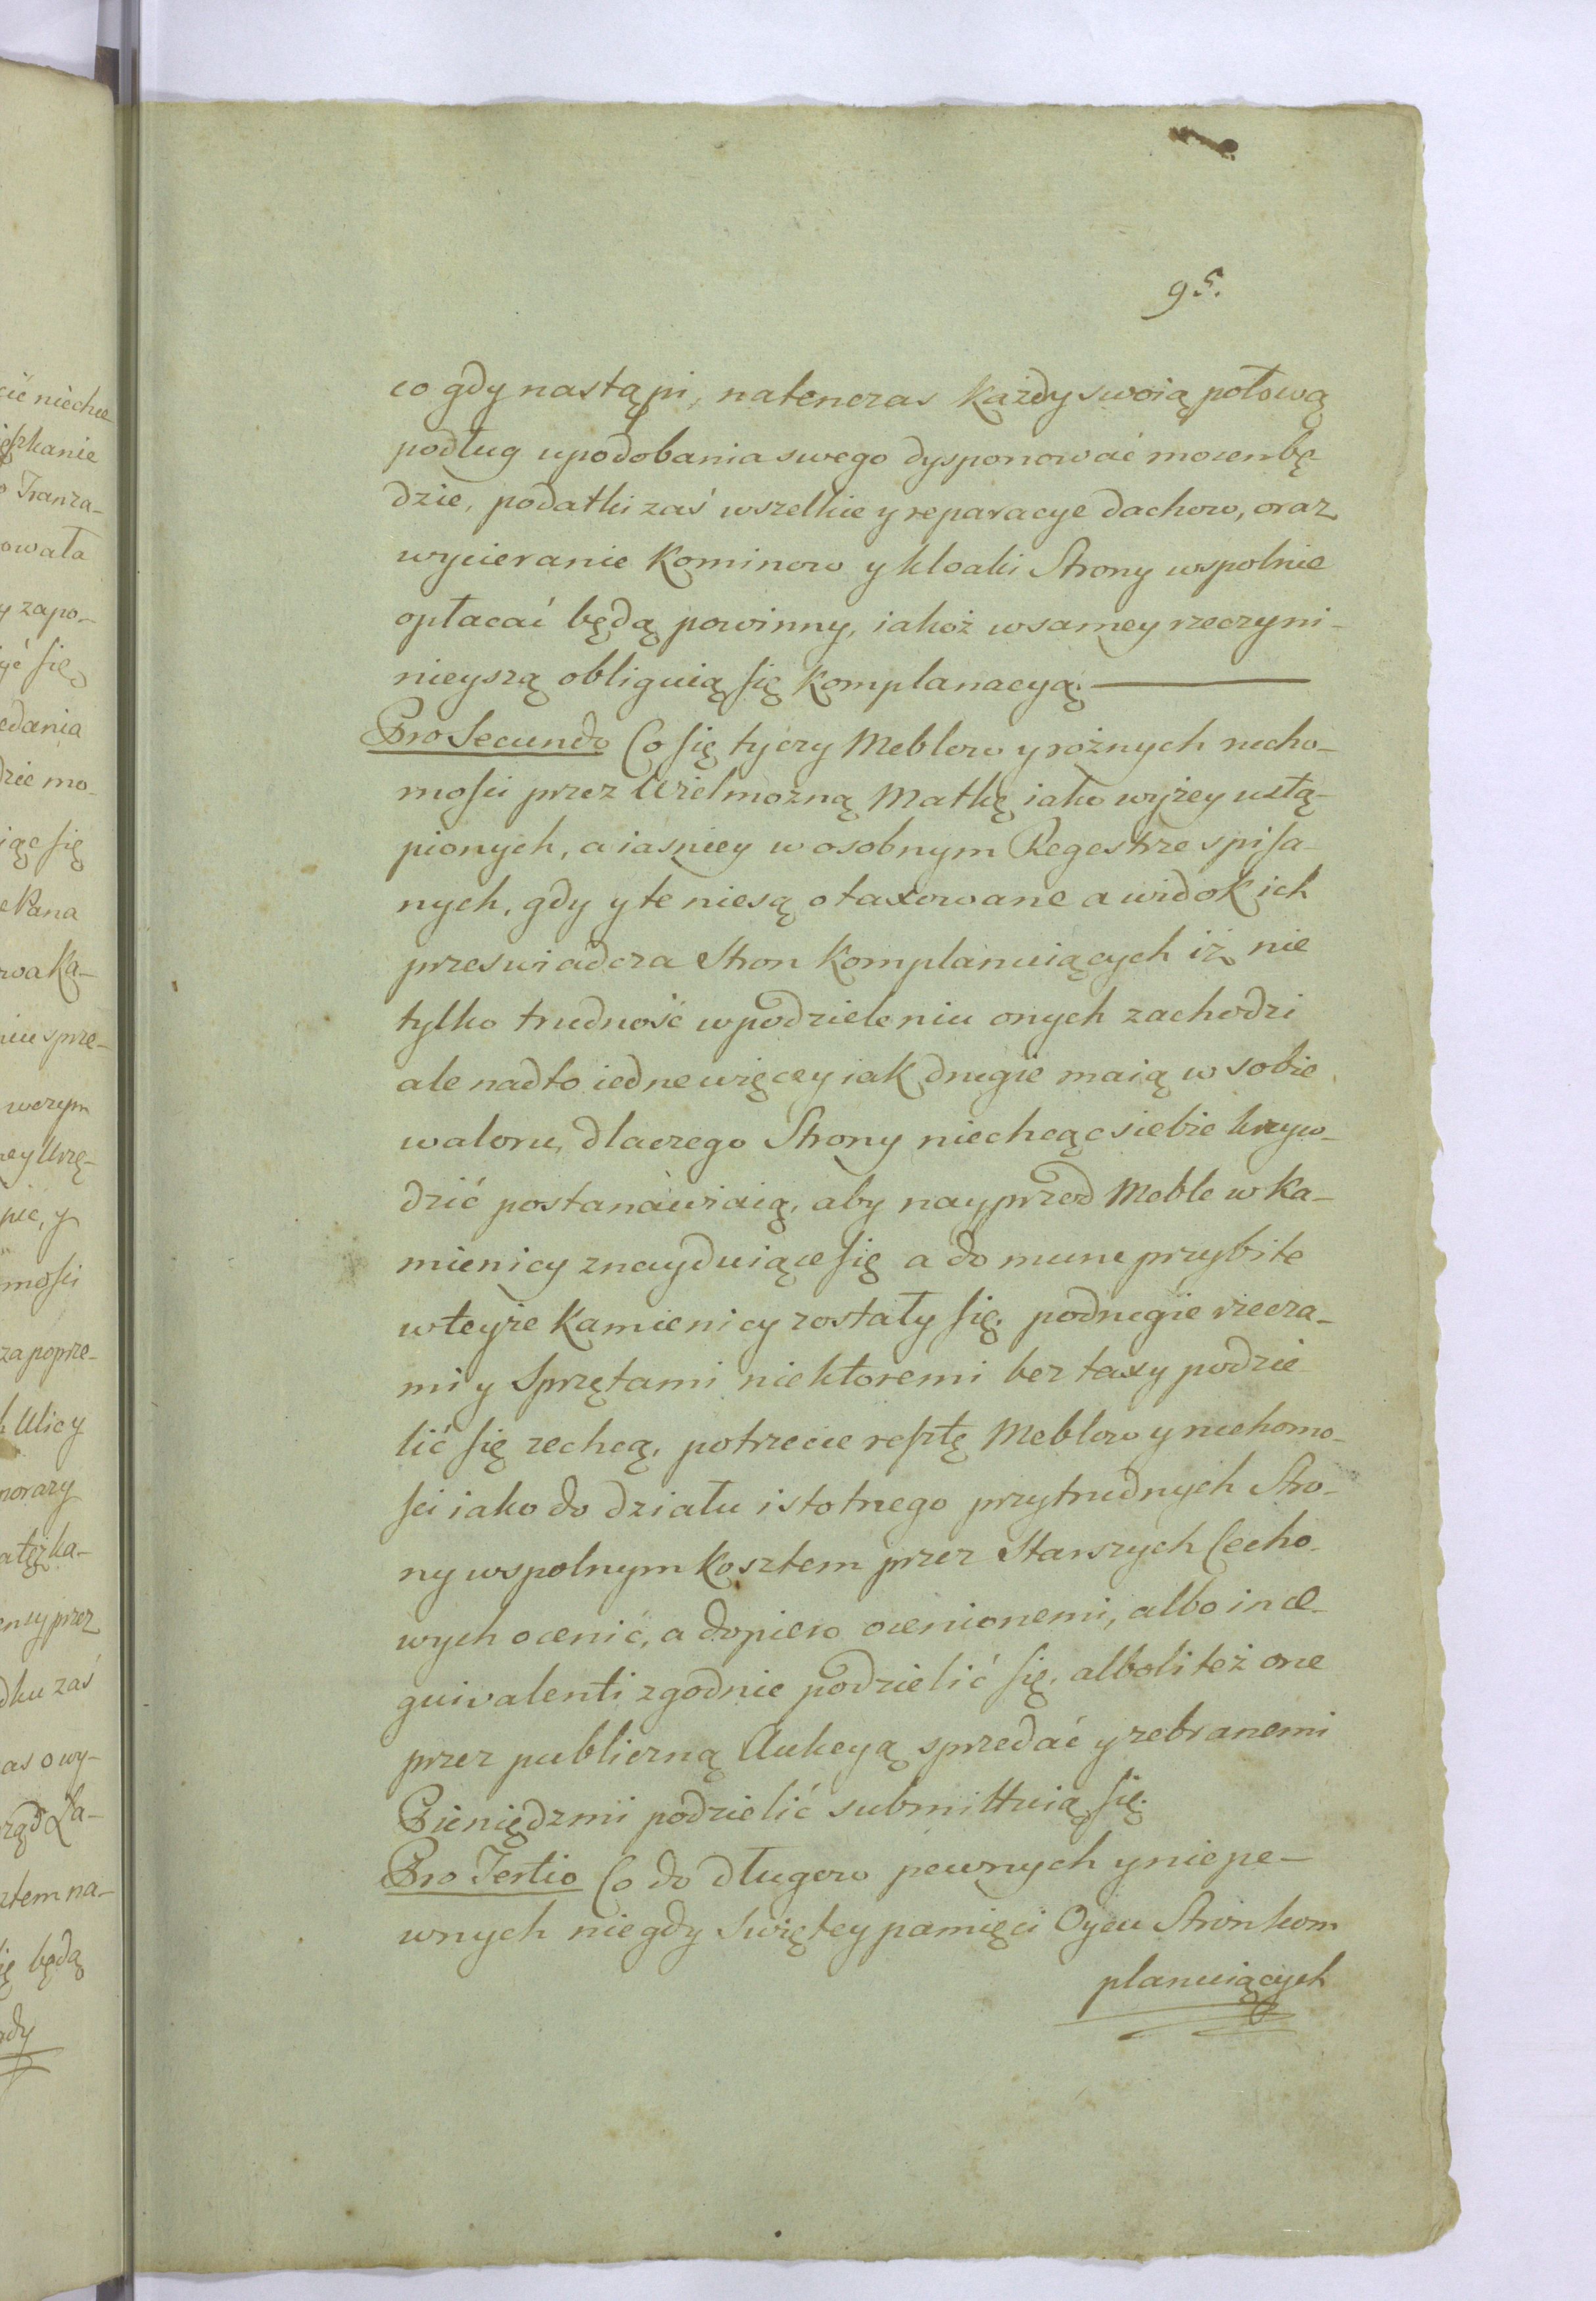 95.
co gdy nastąpi, natenczas każdy swoią połową
podług upodobania swego dysponować mocen bę-
dzie, podatki zaś wszelkie y reparacye dachow, oraz
wycieranie Kominow y kloaki Strony wspolnie
opłacać będą powinny, iakoż w samey rzeczy ni-
nieyszą obliguią się Komplanacyą. —
Pro Secundo Co się tyczy Meblow y rożnych rucho-
mości przez Wielmożną Matkę iako wyżey ustą-
pionych, a iasniey w osobnym Regestrze spisa-
nych, gdy y te niesą otaxowane a widok ich
przeswiadcza Stron Komplanuiących iż nie
tylko trudność w podzieleniu onych zachodzi
ale nadto iedne więcey iak drugie maią w sobie
waloru, dlaczego Strony niechcąc siebie krzyw-
dzić postanawiaią, aby nayprzod Meble w Ka-
mienicy znayduiące się a do muru przybite
w teyże Kamienicy zostały się. podrugie rzecza-
mi y Sprzętami niektoremi bez taxy podzie
lić się zechcą, potrzecie resztę Meblow y ruchomo-
ści iako do działu istotnego przytrudnych Stro-
ny wspolnym Kosztem przez Starszych Cecho-
wych ocenić, a dopiero ocenionemi, albo in æ-
quivalenti zgodnie podzielić się, alboli też one
przez publiczną Aukcyą sprzedać y zebranemi
Pieniędzmi podzielić submittuią się.
Pro Tertio Co do długow pewnych y niepe-
wnych niegdy Swiętey pamięci Oycu Stron kom
planuiących
cić niechce
ięszkanie
o Tranza-
owała
y zapo-
yć się
edania
dzie mo-
iąc się
e Pana
wa Ka-
niu sprze-
w czym
ey Urzę-
pie, y
mości
za poprze-
k Ulicy
norazy
atęż ka-
ency przez
dku zaś
as o wy-
rząd La-
ztem na-
ię będą
żdy